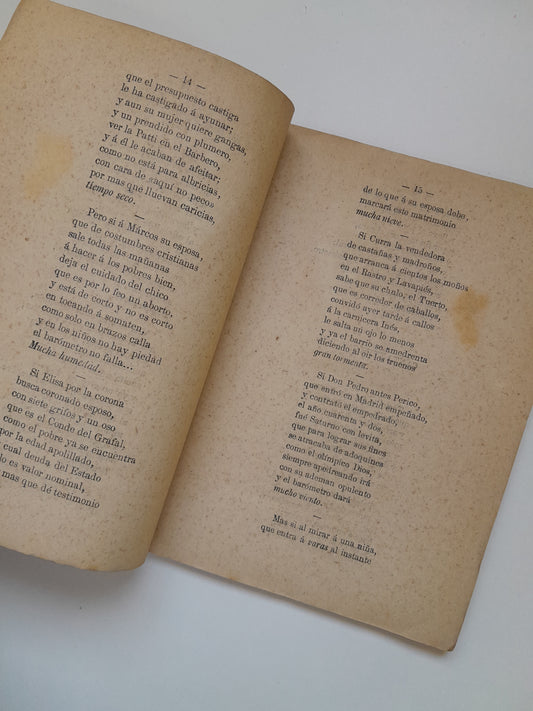 — 14 —
que el presupuesto castiga
le ha castigado á ayunar;
y aun su mujer quiere gangas,
y un prendido con plumero,
ver la Patti en el Barbero,
y á él le acaban de afeitar;
como no está para albricias,
con cara de saquí no pecos
por mas que lluevan caricias,
tiempo seco.
—
Pero si á Márcos su esposa,
que de costumbres cristianas
sale todas las mañanas
á hacer á los pobres bien,
deja el cuidado del chico
que es por lo feo un aborto,
y está de corto y no es corto
en tocando á somaten,
como solo en brazos calla
y en los niños no hay piedad
el barómetro no falla...
Mucha humedad.
—
Si Elisa por la corona
busca coronado esposo,
con siete grifos y un oso
que es el Conde del Grafal,
como el pobre ya se encuentra
por la edad apolillado,
cual deuda del Estado
o es valor nominal,
mas que dé testimonio
— 15 —
de lo que á su esposa debo,
marcará este matrimonio
mucha nieve.
—
Si Curra la vendedora
de castañas y madroños,
que arranca á cientos los moños
en el Rastro y Lavapiés,
sabe que su chulo, el Tuerto,
que es corredor de caballos,
convidó ayer tarde á callos
á la carnicera Inés,
le salta un ojo lo menos
y ya el barrio se amedrenta
diciendo al oir los truenos
gran tormenta.
—
Si Don Pedro antes Perico,
que entró en Madrid empeñado,
y contrató el empedrado,
el año cuarenta y dos,
fué Saturno con levita,
que para lograr sus fines
se atracaba de adoquines
como el olímpico Dios,
siempre apedreando irá
con su ademan opulento
y el barómetro dará
mucho viento.
—
Mas si al mirar á una niña,
que entra á varas al instante